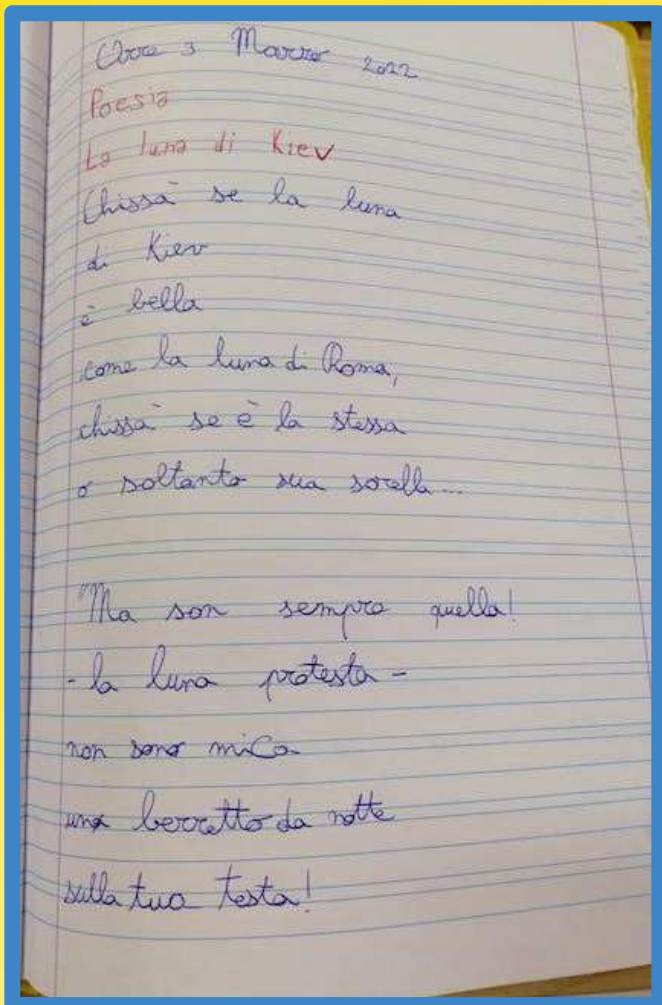 3 Marzo 2022
Poesia
La luna di Kiev
Chissà se la luna
di Kiev
è bella
come la luna di Roma,
chissà se è la stessa
o soltanto sua sorella...
"Ma son sempre quella!
- la luna protesta -
non sono mica
un berretto da notte
sulla tua testa!